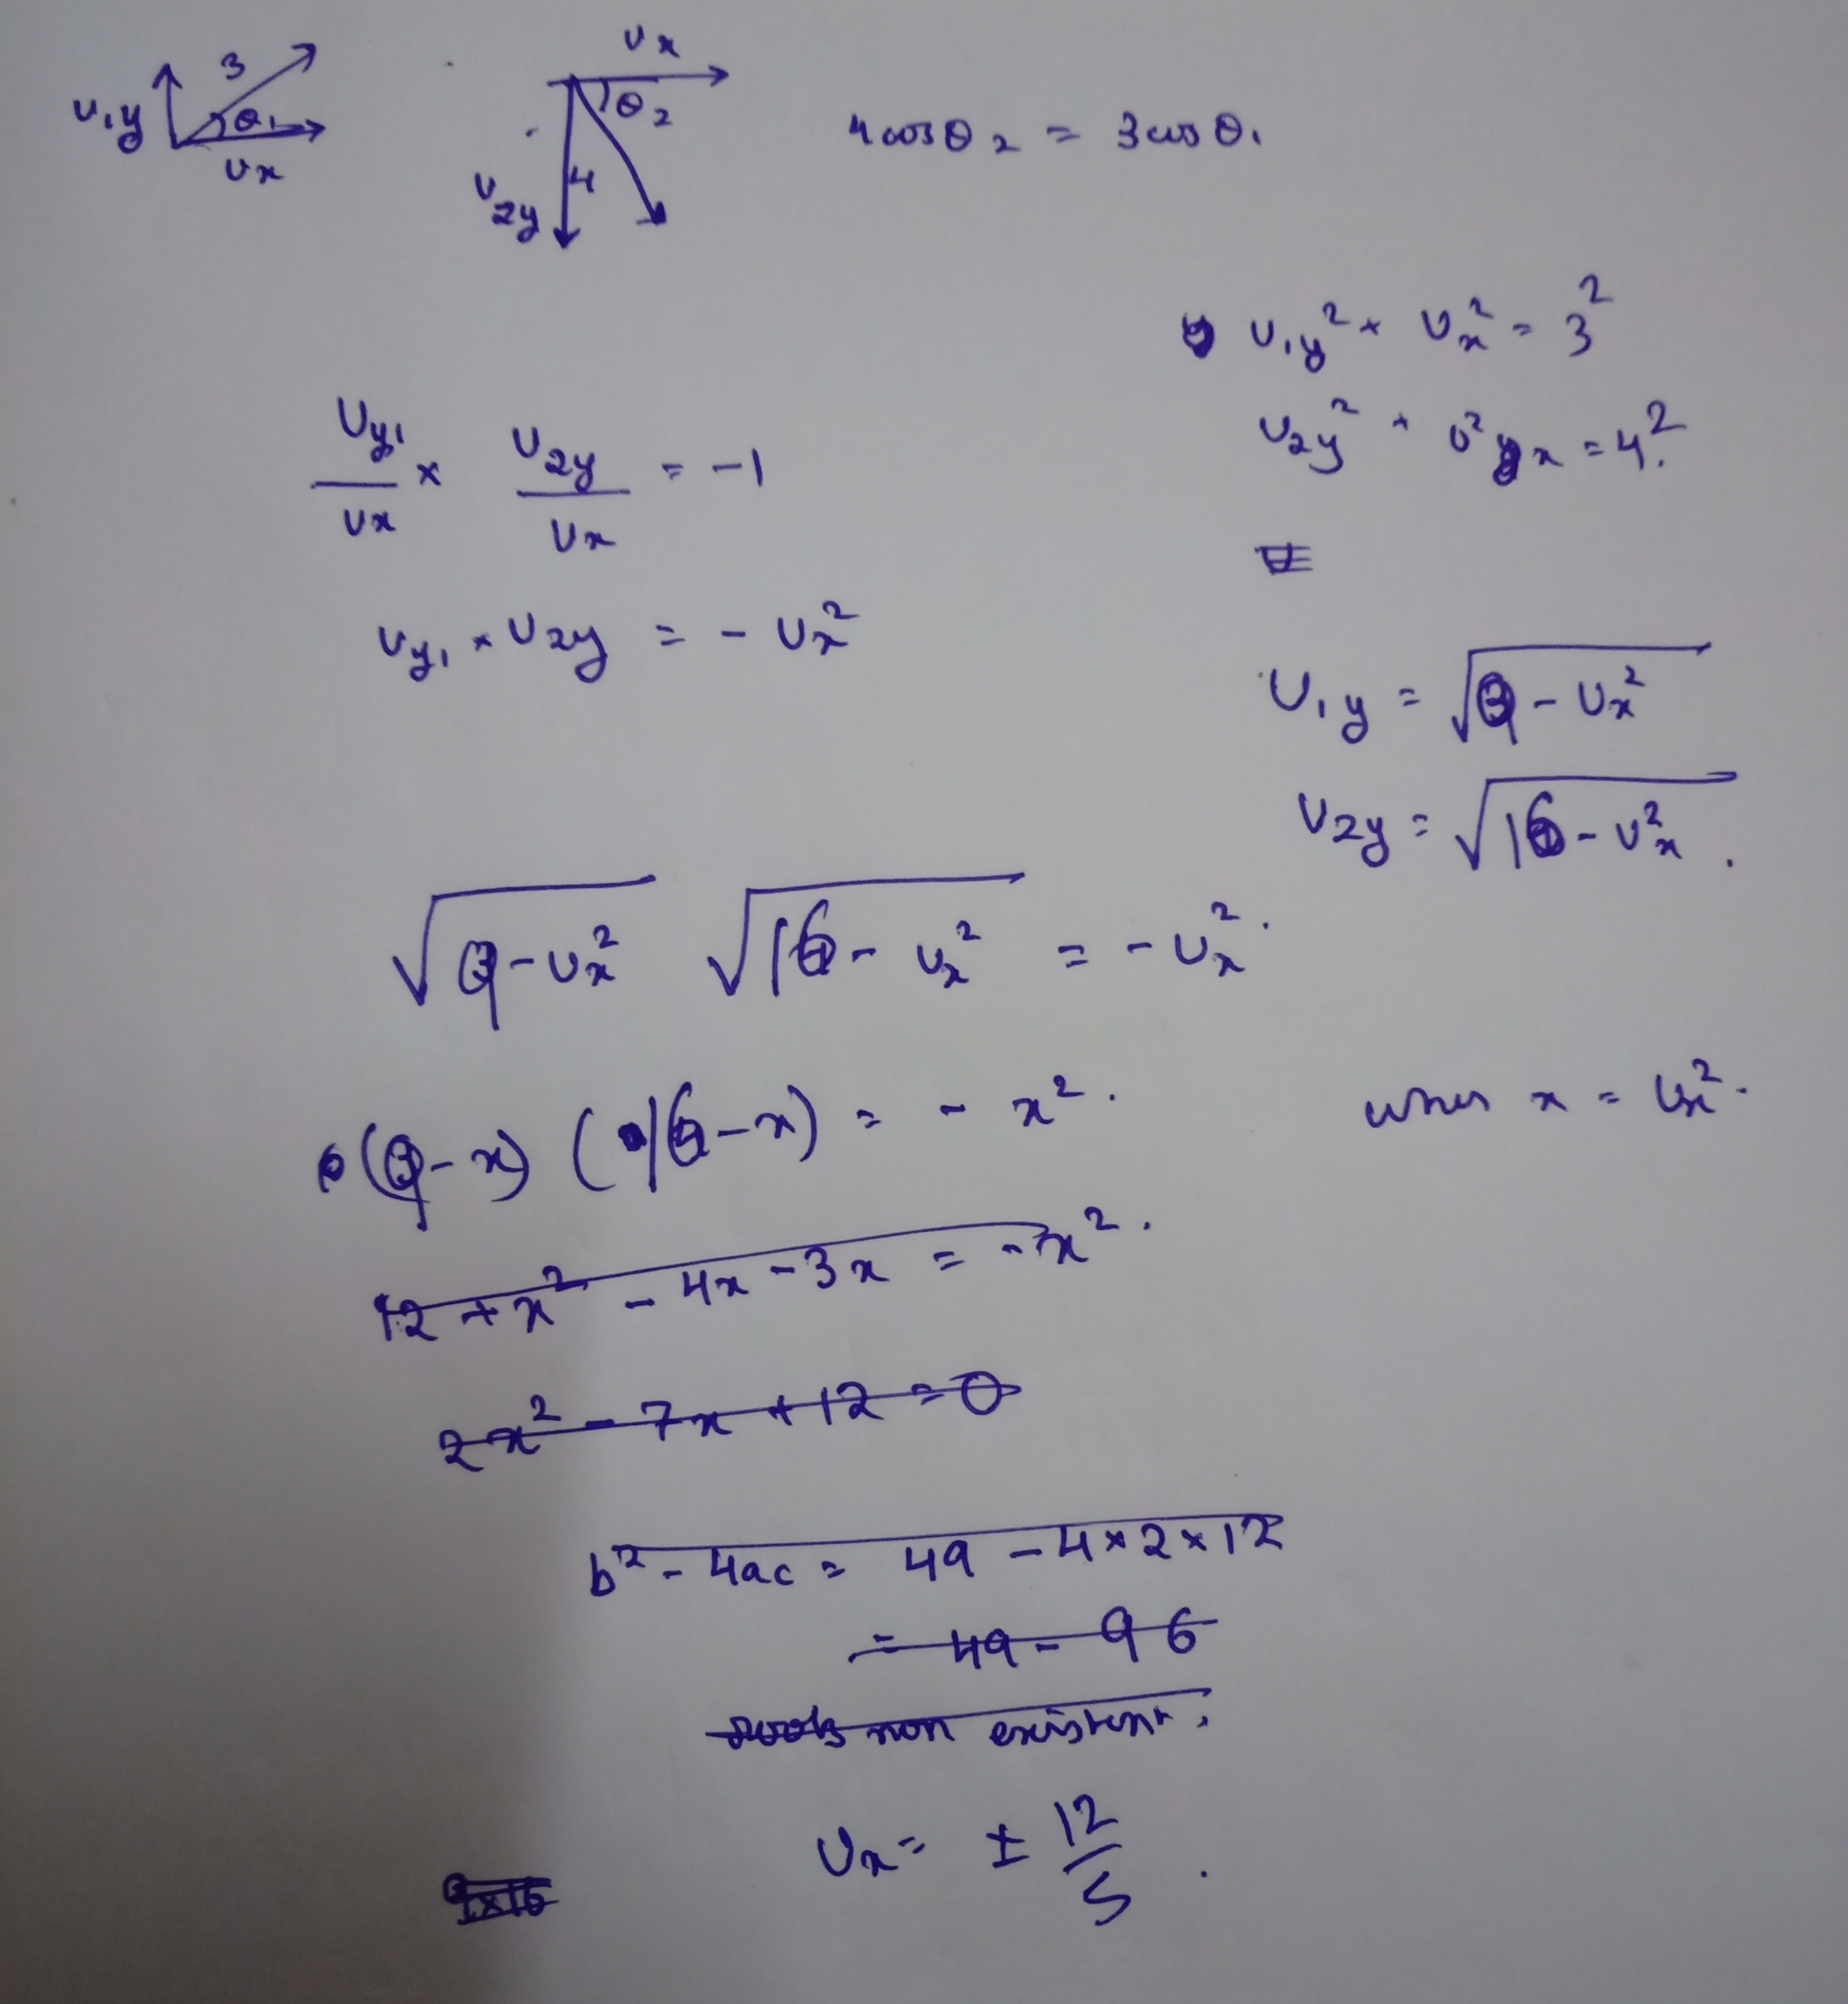 3
U₁y
θ₁
Ux
Ux
θ₂
4
U₂y
4cosθ₂ = 3cosθ₁
U₁y² + Ux² = 3²
U₂y² + U²x = 4².
Uy₁/Ux × U₂y/Ux = -1
Uy₁ × U₂y = - Ux²
U₁y = √(9 - Ux²)
U₂y = √(16 - Ux²).
√(9 - Ux²) √(16 - Ux²) = - Ux².
(9 - x) (16 - x) = - x². when x = Ux².
12 + x² - 4x - 3x = - x².
2x² - 7x + 12 = 0
b² - 4ac = 49 - 4×2×12
= 49 - 96
roots non existent.
Ux = ± 12/5.
9×16